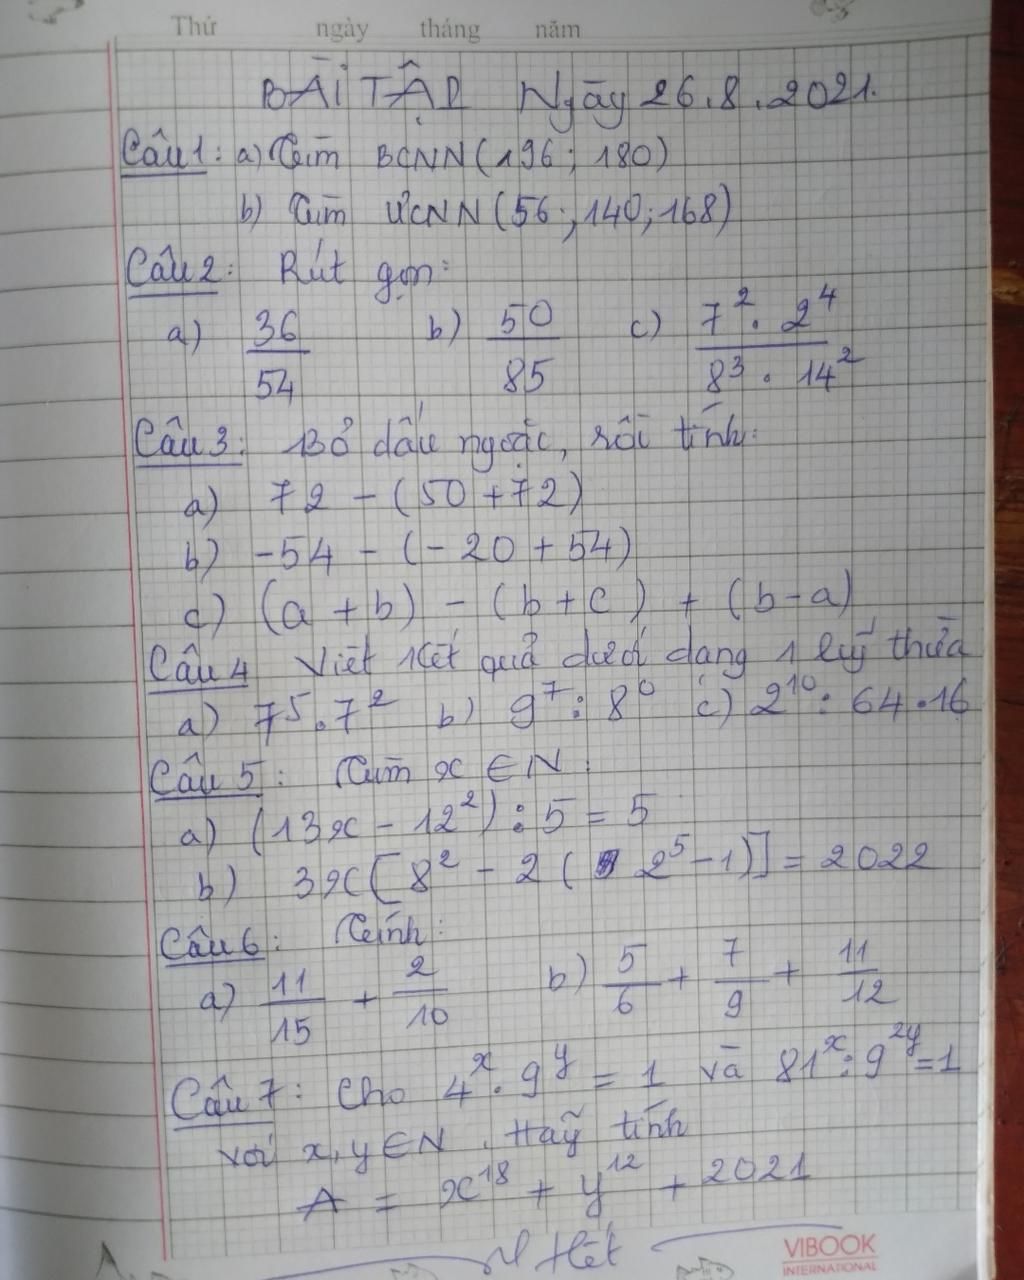 Thứ ngày tháng năm
BÀI TẬP Ngày 26.8.2021.
Câu 1: a) Tìm BCNN(196; 180)
b) Tìm ƯCNN(56; 140; 168)
Câu 2: Rút gọn:
a) 36/54 b) 50/85 c) 7² . 2⁴ / 8³ . 14²
Câu 3: Bỏ dấu ngoặc, rồi tính:
a) 72 - (50 + 72)
b) -54 - (-20 + 54)
c) (a + b) - (b + c) + (b - a)
Câu 4 Viết kết quả dưới dạng 1 luỹ thừa
a) 7⁵.7² b) 9⁷ : 8⁰ c) 2¹⁰ : 64 . 16
Câu 5: Tìm x ∈ N:
a) (13x - 12²) : 5 = 5
b) 3x[8² - 2(2⁵ - 1)] = 2022
Câu 6: Tính:
a) 11/15 + 2/10 b) 5/6 + 7/9 + 11/12
Câu 7: Cho 4ˣ . 9ʸ = 1 và 81ˣ : 9²ʸ = 1
với x, y ∈ N. Hãy tính
A = x¹⁸ + y¹² + 2021
Hết
VIBOOK
INTERNATIONAL